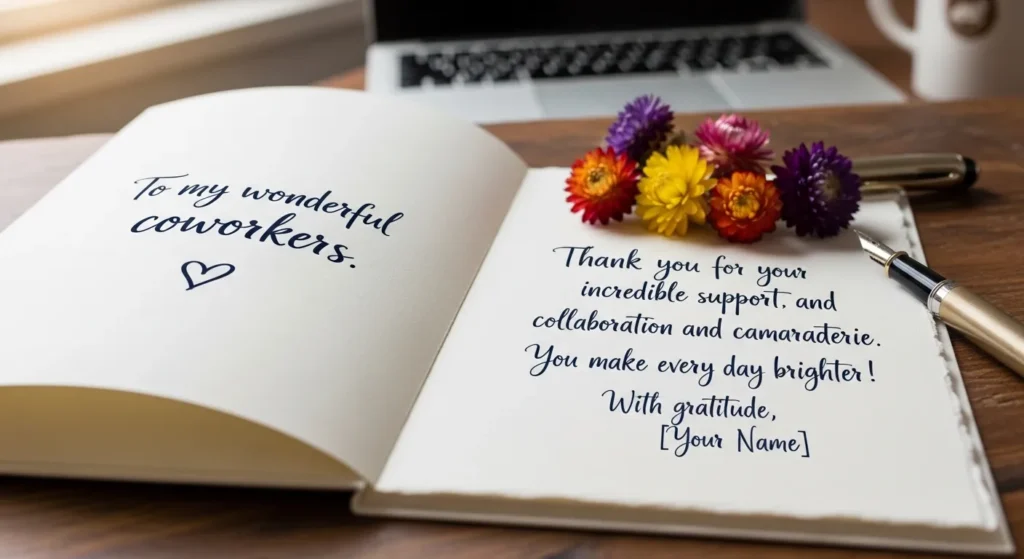 To my wonderful
coworkers.
Thank you for your
incredible support, and
collaboration and camaraterie.
You make every day brighter!
With gratitude,
[Your Name]